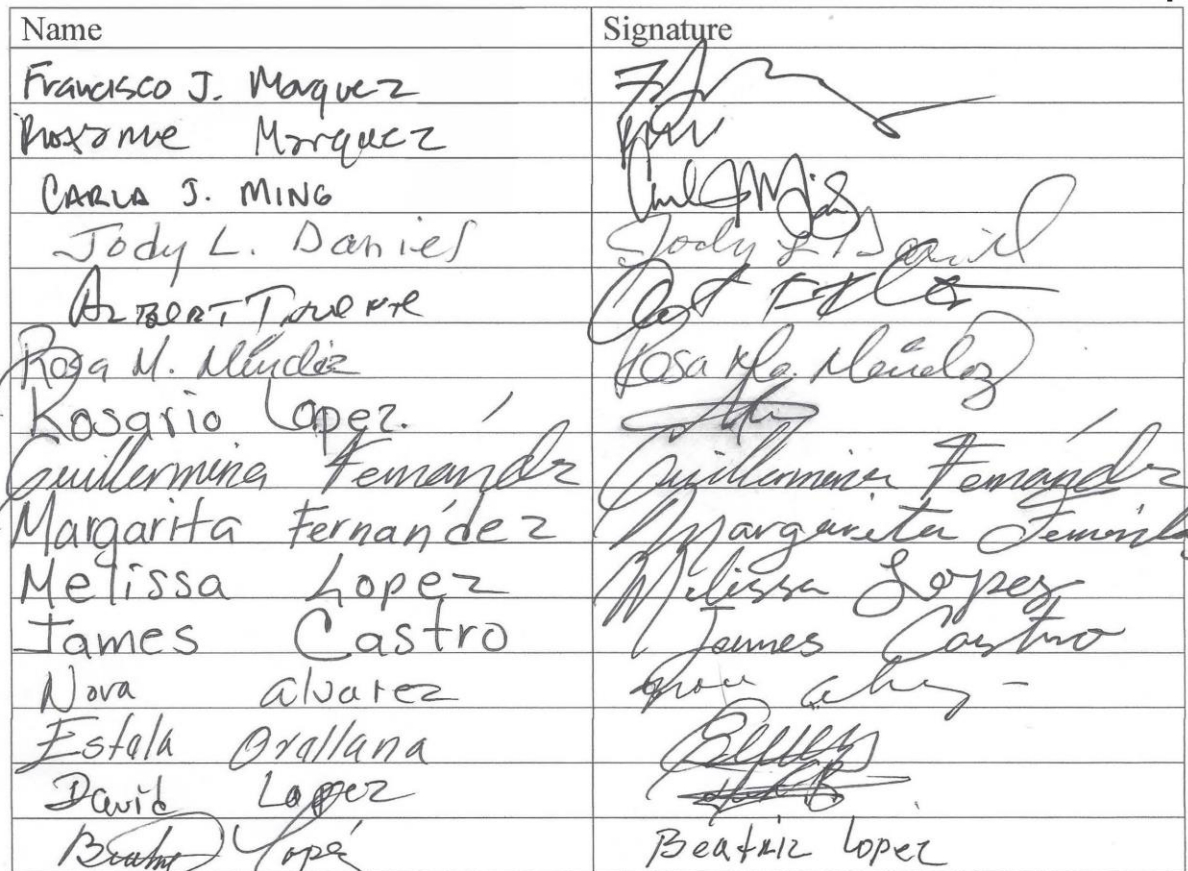 Name Signature
Francisco J. Marquez
Roxanne Marquez
CARLA J. MING
Jody L. Daniel Jody L Daniel
ALBERT
Rosa M. Méndez Rosa Ma. Méndez
Rosario Lopez.
Guillermina Fernández Guillermina Fernández
Margarita Fernández Margarita Fernández
Melissa Lopez Melissa Lopez
James Castro James Castro
Nora alvarez
Estela Orellana
David Lopez
Lopez Beatriz Lopez